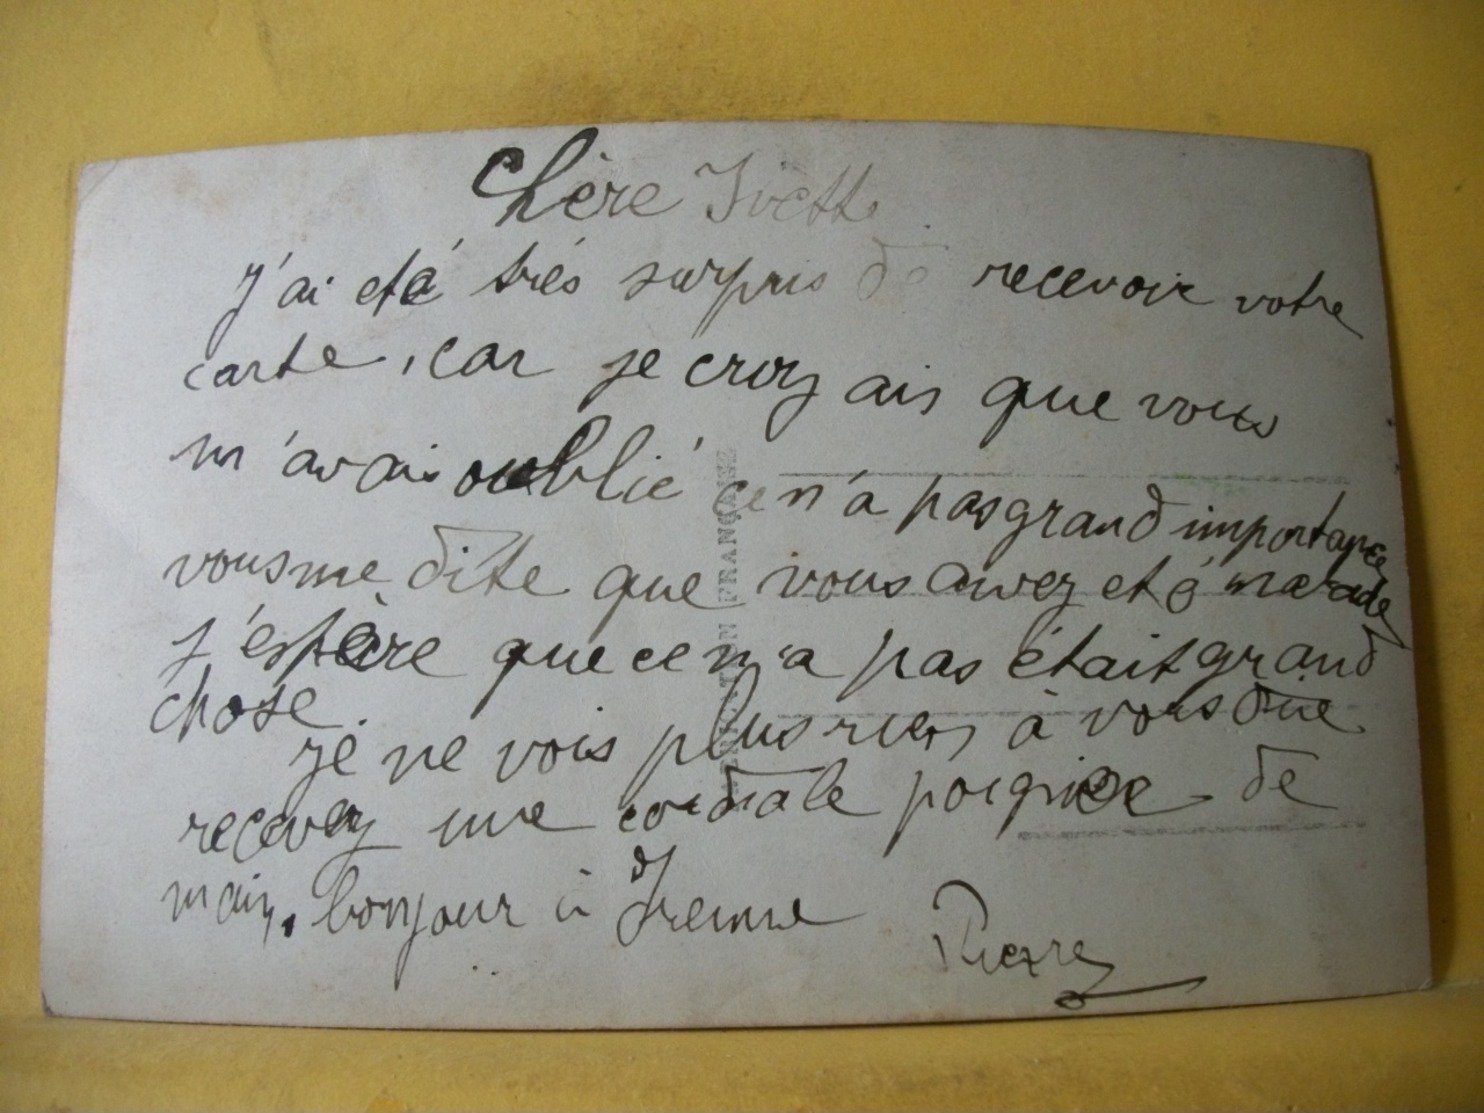 Chère Ivette
J'ai eté trés surpris de recevoir votre
carte, car je croyais que vous
m'avais oublié ce n'a pas grand importance
vous me dite que vous avez eté malade
j'espère que ce n'a pas était grand
chose.
Je ne vois plus rien à vous dire
recevez une cordiale poignée de
main, bonjour à
Pierre
FABRICATION FRANÇAISE